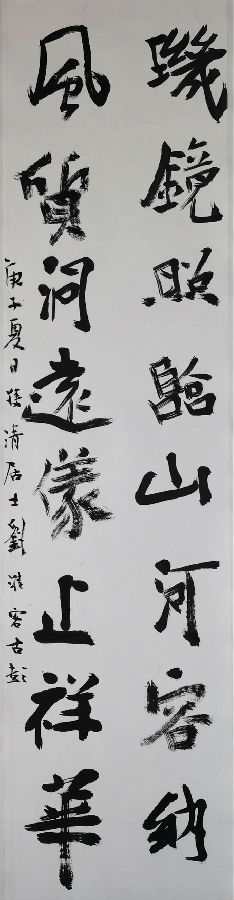 璣鏡照臨山河容納
風質洞遠儀止祥華
庚子夏日清居士劉客古彭